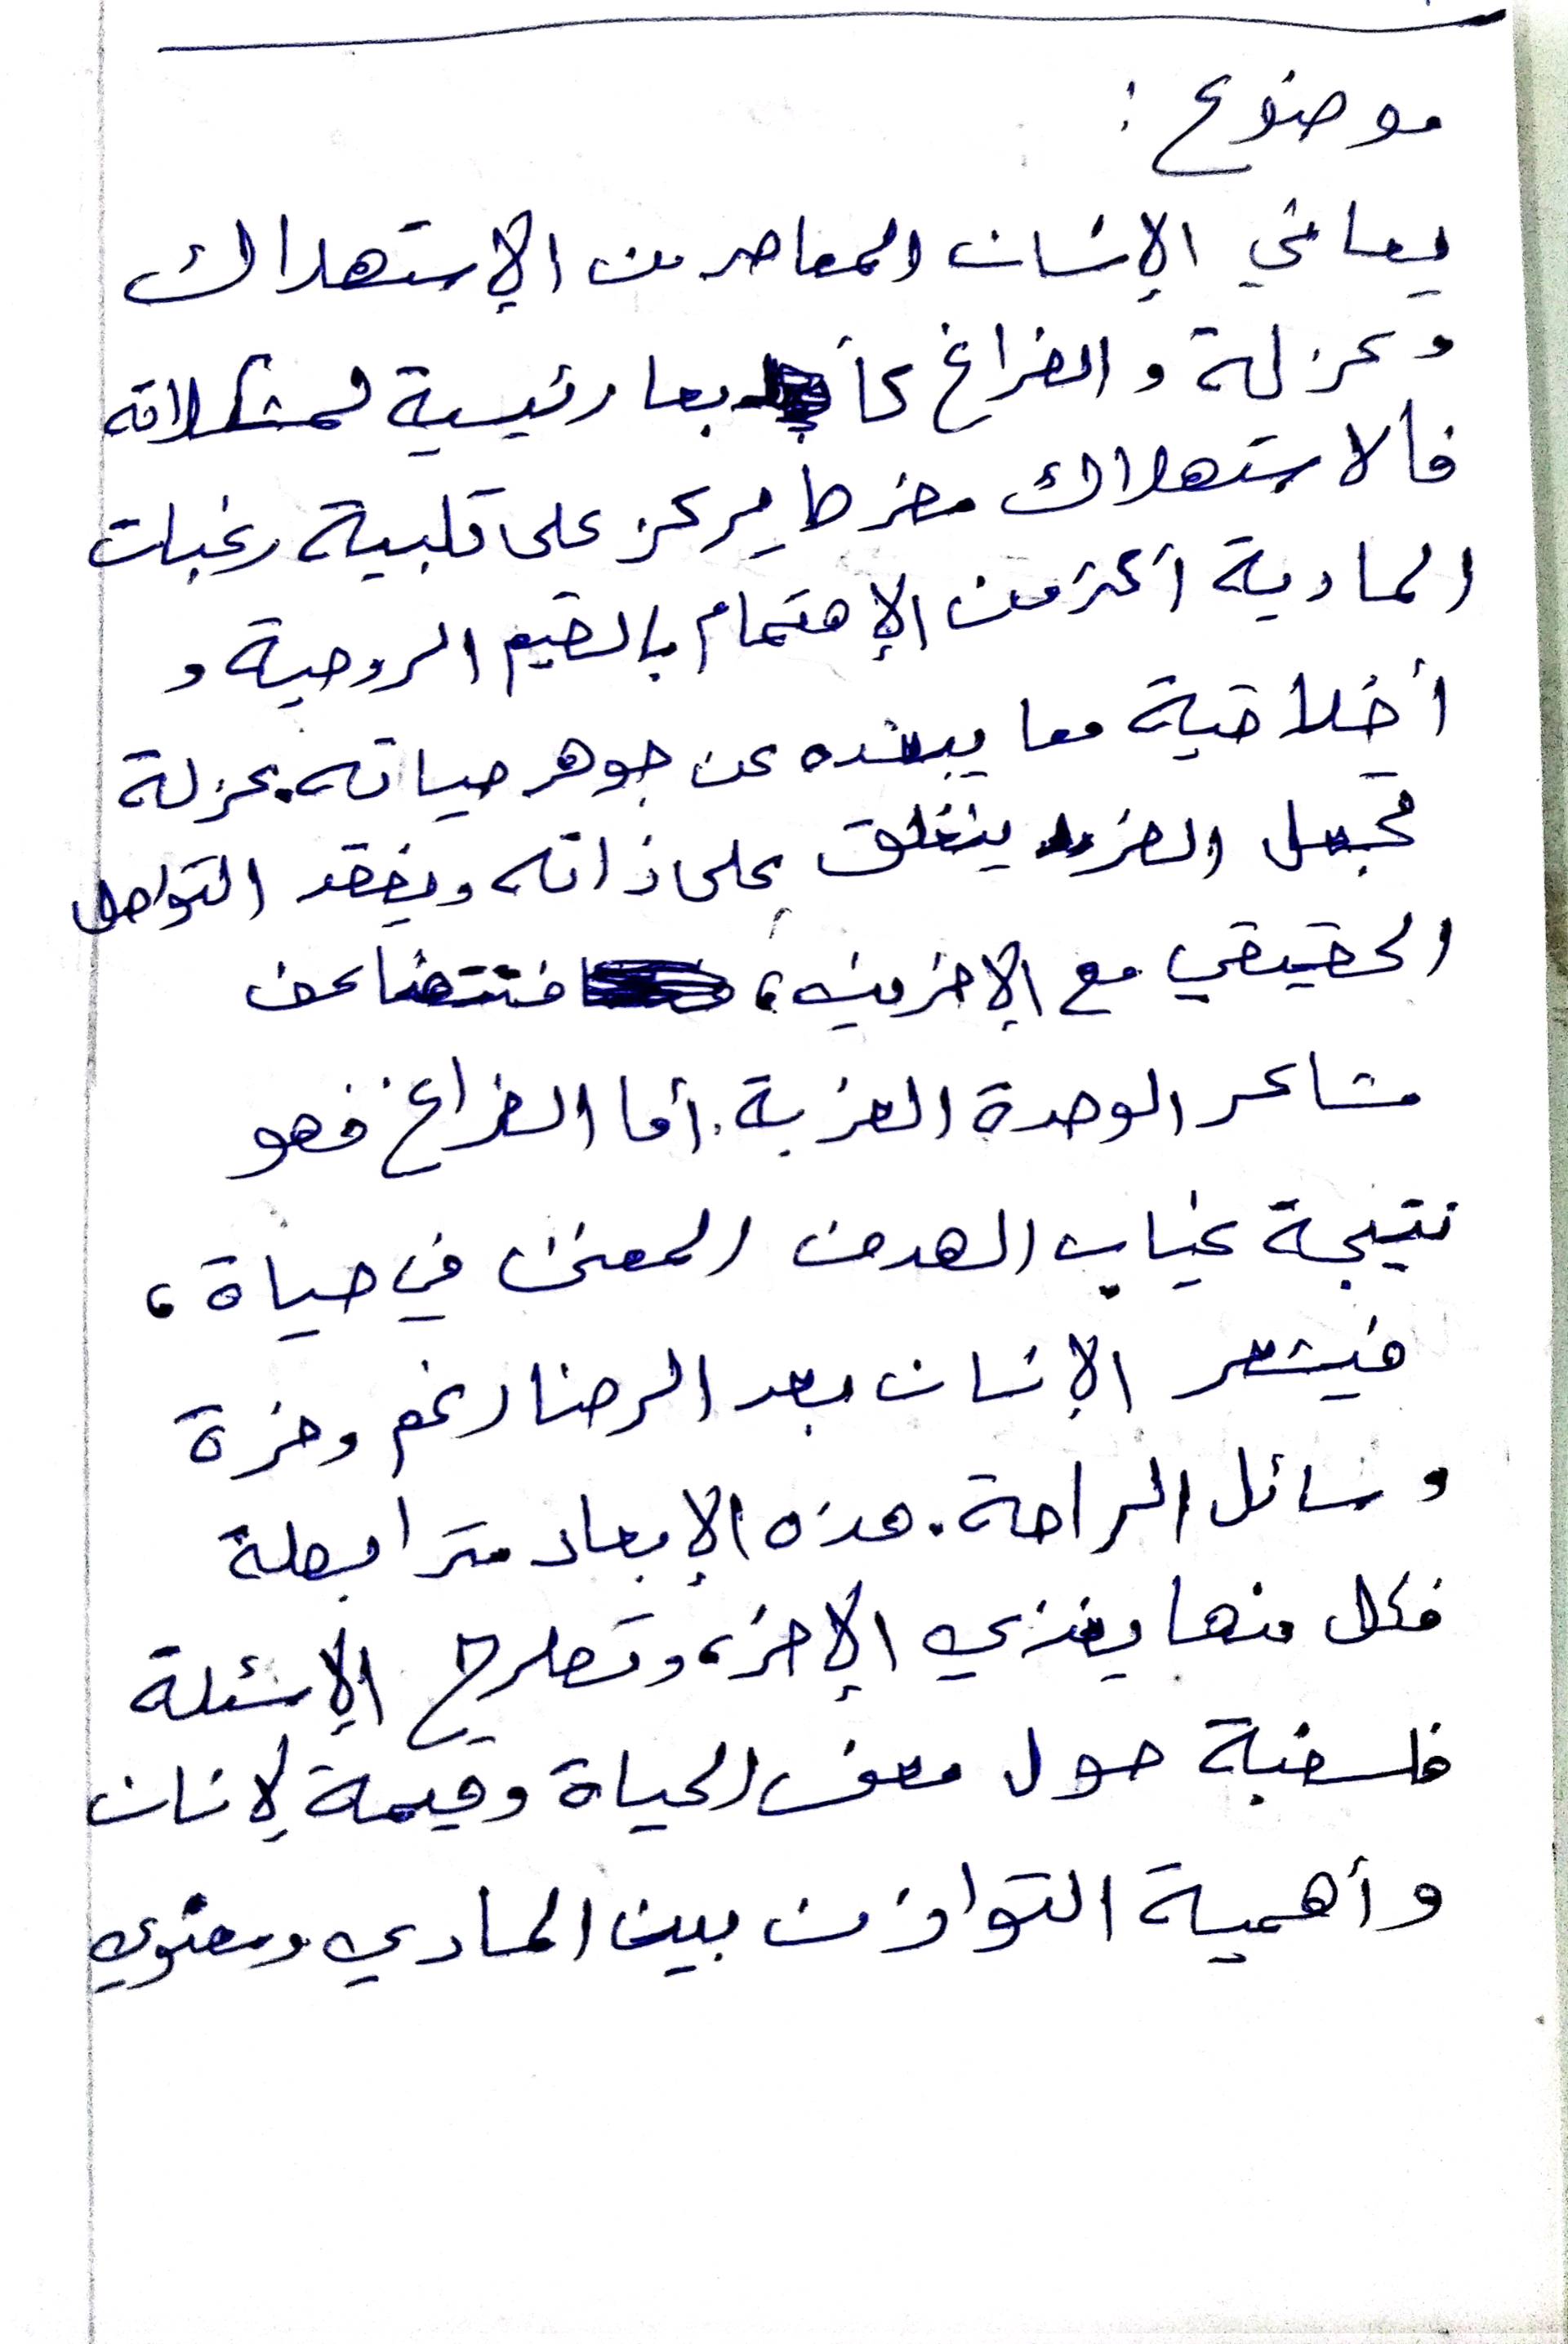 موضوع :
يعاني الإنسان المعاصر من الإستهلاك
وعزلة والفراغ كأبعا رئيسية لمشكلاته
فالاستهلاك مفرط يركز على تلبية رغبات
المادية أكثر من الإهتمام بالقيم الروحية و
أخلاقية مما يبعده عن جوهر حياته. عزلة
تجعل الفرد ينغلق على ذاته ويفقد التواصل
الحقيقي مع الإخرين، فتتضاعف
مشاعر الوحدة الغربة. أما الفراغ فهو
نتيجة غياب الهدف المعنى في حياة،
فيشعر الإنسان بعد الرضا رغم وفرة
وسائل الراحة. هذه الإبعاد مترابطة
فكل منها يغذي الإخر، وتطرح الإسئلة
فلسفية حول معنى الحياة وقيمة لإنسان
وأهمية التوازن بين المادي ومعنوي